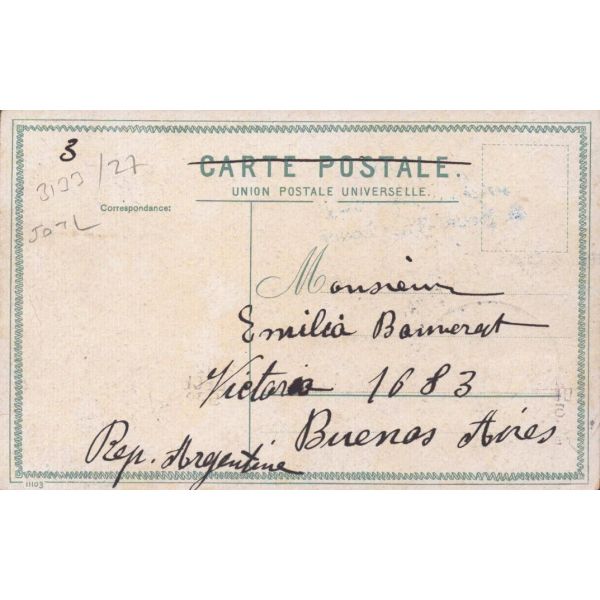 3
3133/27
50TL
CARTE POSTALE.
UNION POSTALE UNIVERSELLE.
Correspondance:
Monsieur
Emilia
Victoria 1683
Buenos Aires
Rep. Argentine
11103